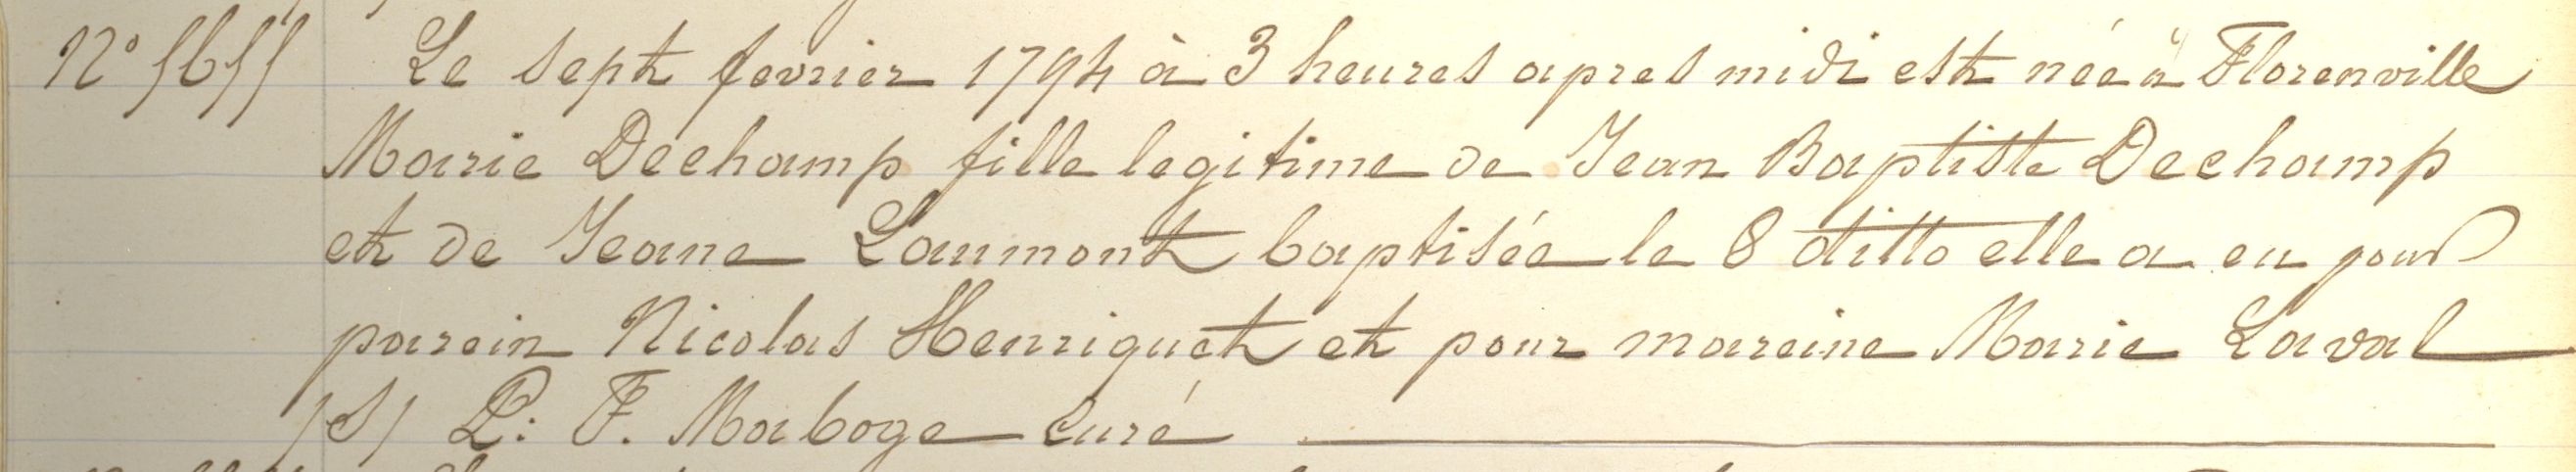 Le sept fevrier 1794 à 3 heures apres midi est née à Florenville
Marie Dechamp fille legitime de Jean Baptiste Dechamp
et de Jeane Laumont baptisée le 8 ditto elle a eu pour
parein Nicolas Henriquet et pour mareine Marie Laval
/S/ P. F. Maboge Curé